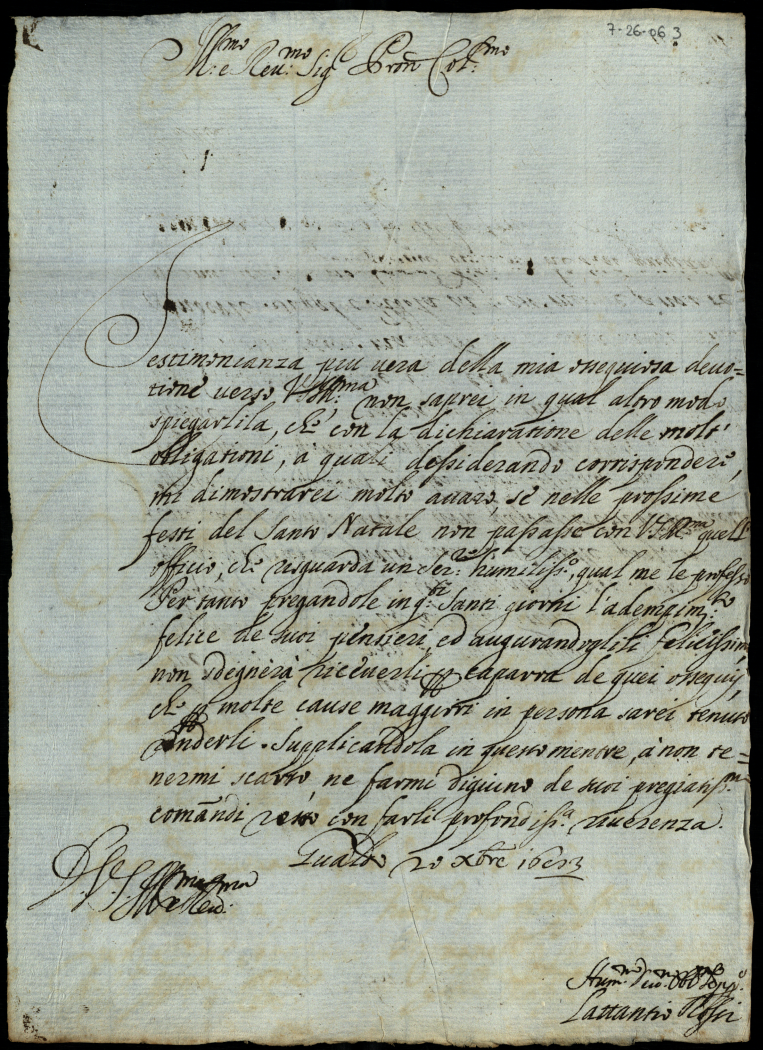 7-26-063
Ill.mo e Reu.mo Sig.r Pron Col.mo
Testimonianza piu vera della mia ossequiosa deuo=
tione verso V.S. Ill.ma non saprei in qual altro modo
spiegarlila, che con la dichiaratione delle molt'
obligationi, a quali dessiderando corrispondere,
mi dimostrarei molto auaro, se nelle prossime
festi del Santo Natale non passasse con V.S. Ill.ma quell'
officio, che resguarda un Ser.re humiliss.o, qual me le professo
Per tanto pregandole in q.sti Santi giorni l'adempim.to
felice de suoi pensieri, ed augurandoglili felicissimi
non sdegnerà riceuerli p caparra de quei ossequij,
che p molte cause maggiori in persona sarei tenuto
renderli. Supplicandola in questo mentre, à non te=
nermi scarso, ne farmi digiuno de suoi pregiatiss.mi
comandi resto con farli profondiss.a riuerenza.
Gualdo 20 xbre 1653
D. V. S. Ill.ma e Reu.ma
Hum.mo Deu.mo Obl.mo
Lattantio